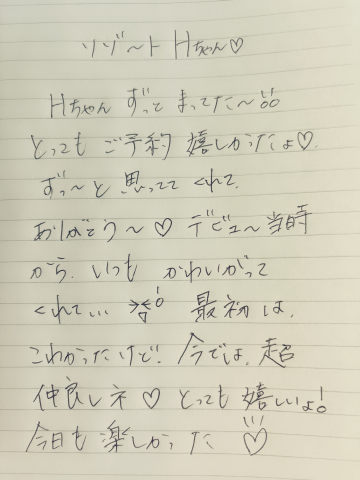 リゾ〜ト Hちゃん♡
Hちゃん ずっと まってた〜!!
とっても ご予約 嬉しかったょ♡.
ずっ〜と 思ってて くれて.
ありがとう〜♡ デビュ〜当時
から. いつも かわいがって
くれて... 最初は.
これわかったけど! 今では. 超
仲良しネ♡ とっても 嬉しいょ!
今日も 楽しかった ♡